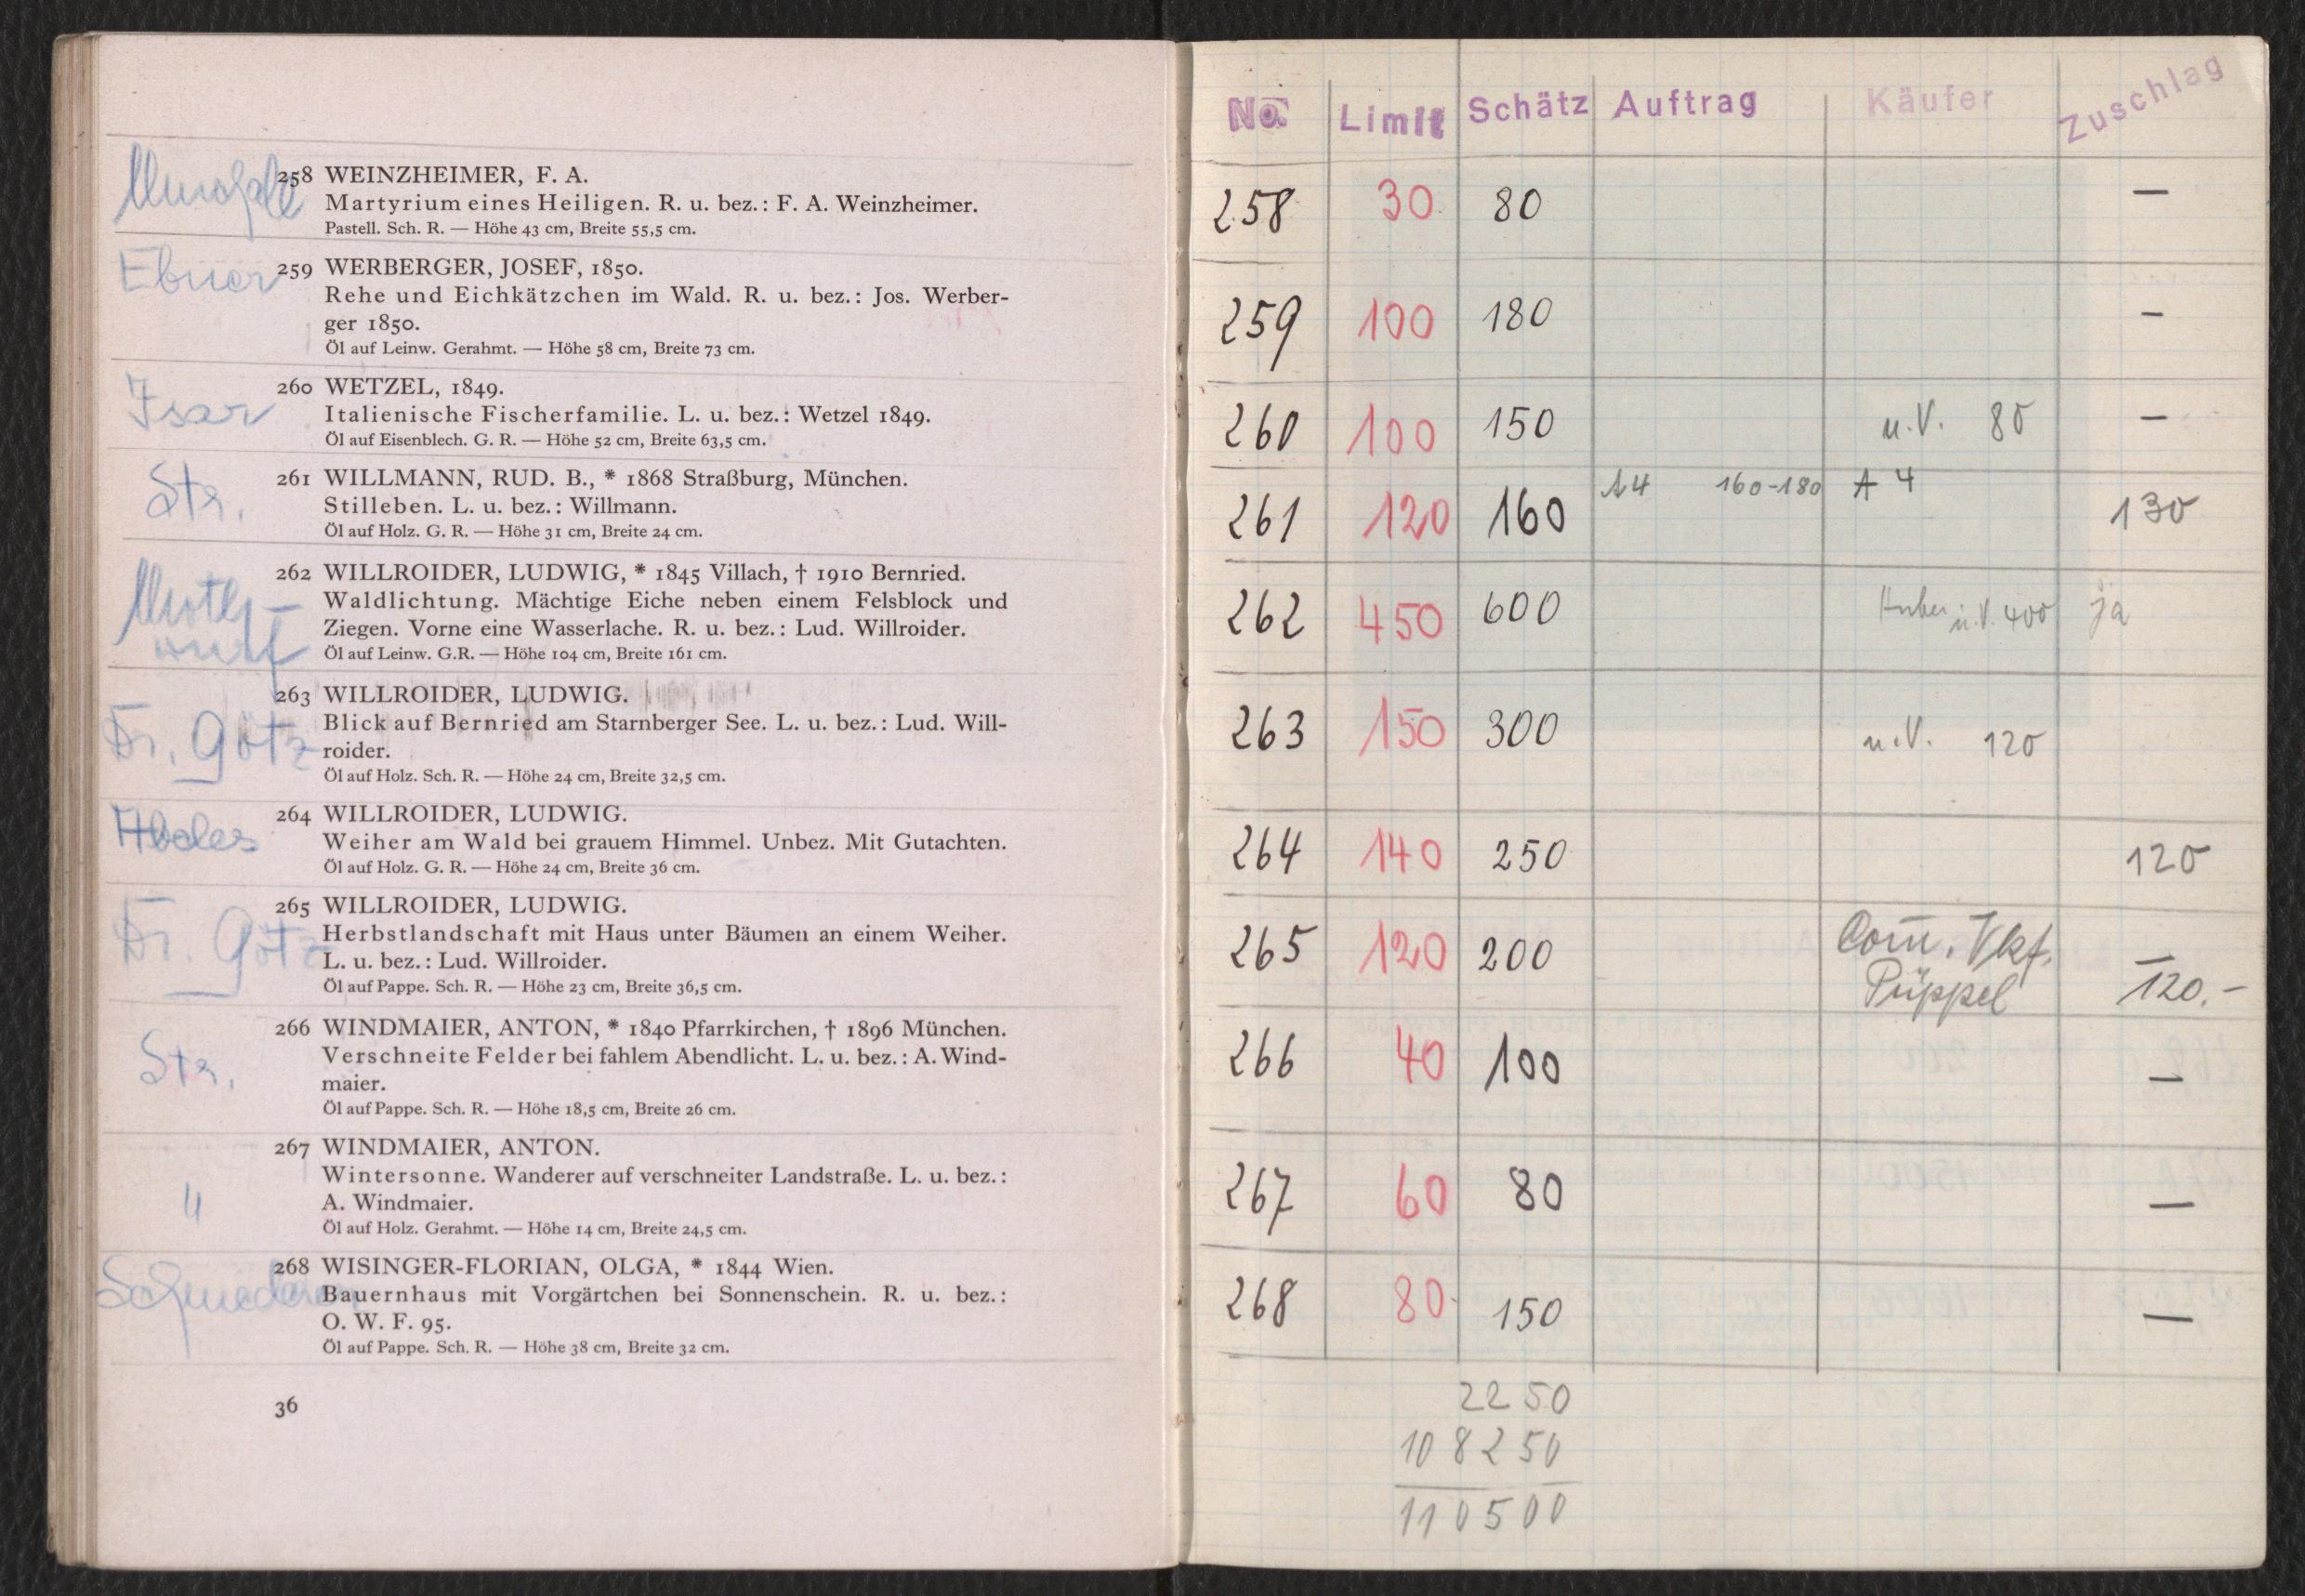 258 WEINZHEIMER, F. A.
Martyrium eines Heiligen. R. u. bez.: F. A. Weinzheimer.
Pastell. Sch. R. — Höhe 43 cm, Breite 55,5 cm.
Ebner
259 WERBERGER, JOSEF, 1850.
Rehe und Eichkätzchen im Wald. R. u. bez.: Jos. Werber-
ger 1850.
Öl auf Leinw. Gerahmt. — Höhe 58 cm, Breite 73 cm.
Isar
260 WETZEL, 1849.
Italienische Fischerfamilie. L. u. bez.: Wetzel 1849.
Öl auf Eisenblech. G. R. — Höhe 52 cm, Breite 63,5 cm.
Str.
261 WILLMANN, RUD. B., * 1868 Straßburg, München.
Stilleben. L. u. bez.: Willmann.
Öl auf Holz. G. R. — Höhe 31 cm, Breite 24 cm.
262 WILLROIDER, LUDWIG, * 1845 Villach, † 1910 Bernried.
Waldlichtung. Mächtige Eiche neben einem Felsblock und
Ziegen. Vorne eine Wasserlache. R. u. bez.: Lud. Willroider.
Öl auf Leinw. G.R. — Höhe 104 cm, Breite 161 cm.
Dr. Götz
263 WILLROIDER, LUDWIG.
Blick auf Bernried am Starnberger See. L. u. bez.: Lud. Will-
roider.
Öl auf Holz. Sch. R. — Höhe 24 cm, Breite 32,5 cm.
Abeles
264 WILLROIDER, LUDWIG.
Weiher am Wald bei grauem Himmel. Unbez. Mit Gutachten.
Öl auf Holz. G. R. — Höhe 24 cm, Breite 36 cm.
Dr. Götz
265 WILLROIDER, LUDWIG.
Herbstlandschaft mit Haus unter Bäumen an einem Weiher.
L. u. bez.: Lud. Willroider.
Öl auf Pappe. Sch. R. — Höhe 23 cm, Breite 36,5 cm.
Str.
266 WINDMAIER, ANTON, * 1840 Pfarrkirchen, † 1896 München.
Verschneite Felder bei fahlem Abendlicht. L. u. bez.: A. Wind-
maier.
Öl auf Pappe. Sch. R. — Höhe 18,5 cm, Breite 26 cm.
"
267 WINDMAIER, ANTON.
Wintersonne. Wanderer auf verschneiter Landstraße. L. u. bez.:
A. Windmaier.
Öl auf Holz. Gerahmt. — Höhe 14 cm, Breite 24,5 cm.
268 WISINGER-FLORIAN, OLGA, * 1844 Wien.
Bauernhaus mit Vorgärtchen bei Sonnenschein. R. u. bez.:
O. W. F. 95.
Öl auf Pappe. Sch. R. — Höhe 38 cm, Breite 32 cm.
36
No. Limit Schätz Auftrag Käufer Zuschlag
258 30 80 —
259 100 180 —
260 100 150 u.V. 80 —
261 120 160 A4 160-180 A 4 130
262 450 600 Huber u.V. 400 ja
263 150 300 u.V. 120
264 140 250 120
265 120 200 Com. Vkf. —
Püppel 120.-
266 40 100 —
267 60 80 —
268 80 150 —
2250
108250
110500